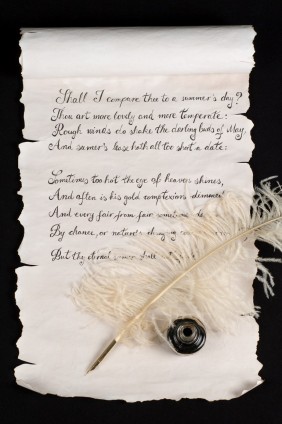 Shall I compare thee to a summer's day?
Thou art more lovely and more temperate:
Rough winds do shake the darling buds of May,
And summer's lease hath all too short a date:
Sometimes too hot the eye of heaven shines,
And often is his gold complexion dimmed,
And every fair from fair sometime de
By chance, or nature's changing
But thy eternal summer shall